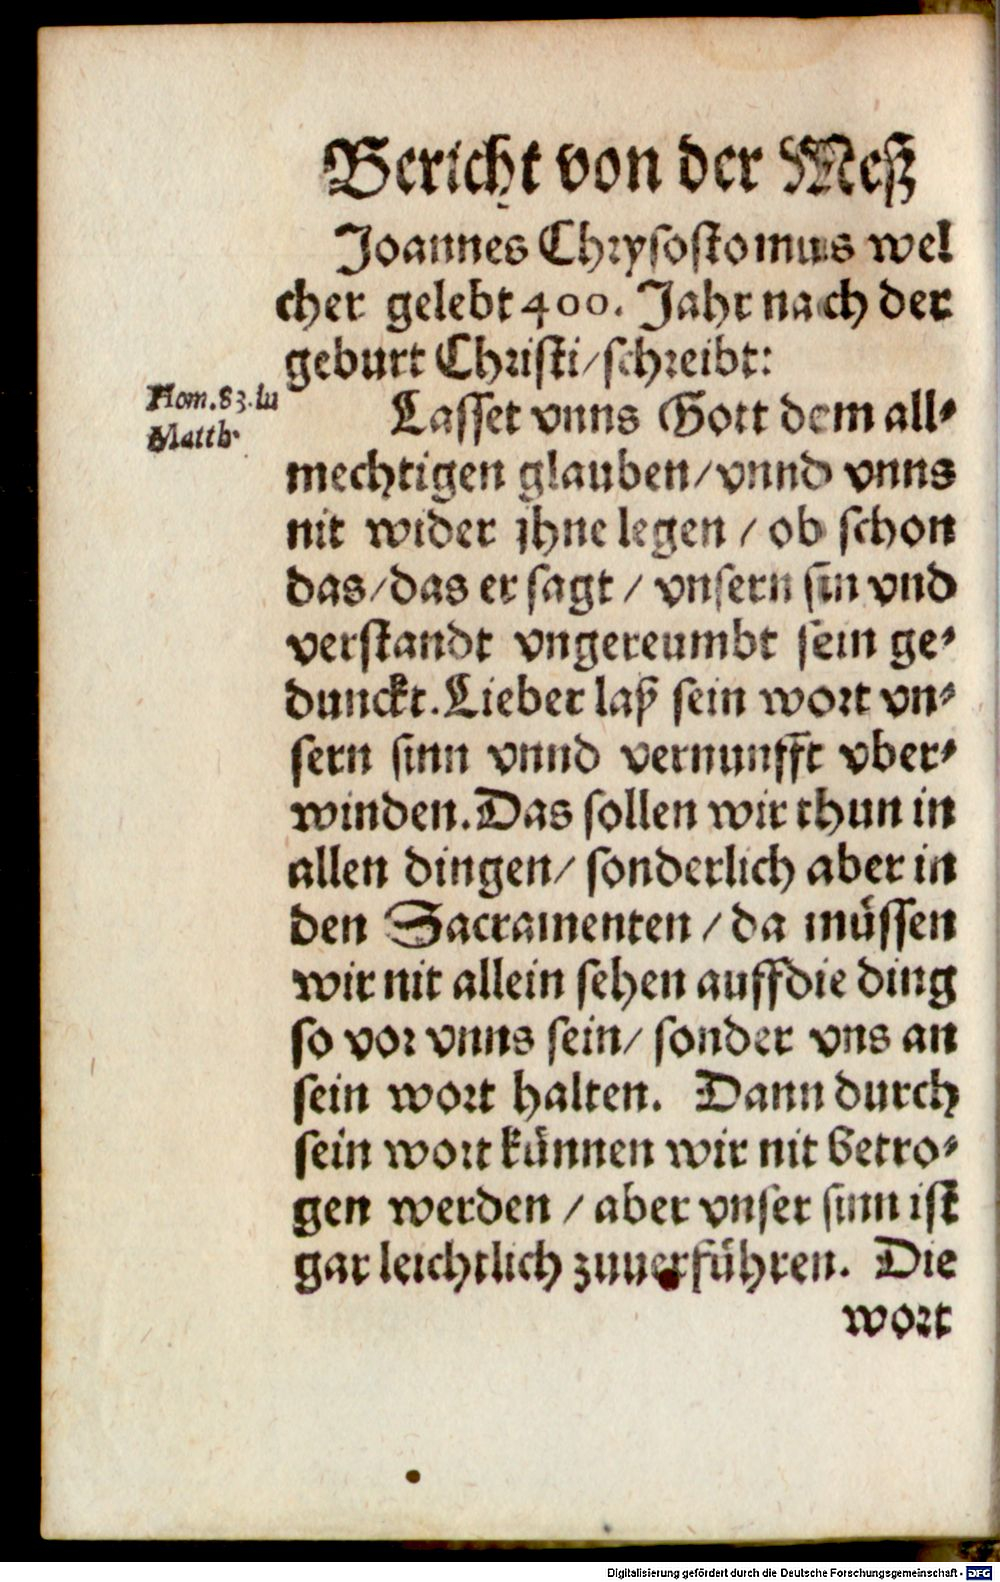 Bericht von der Meß
Joannes Chrysostomus wel
cher gelebt 400. Jahr nach der
geburt Christi/schreibt:
Hom. 83. in
Matth.
Lasset vnns Gott dem all⸗
mechtigen glauben/vnnd vnns
nit wider jhne legen / ob schon
das/das er sagt / vnsern sin vnd
verstandt vngereumbt sein ge⸗
dunckt. Lieber laß sein wort vn⸗
sern sinn vnnd vernunfft vber⸗
winden. Das sollen wir thun in
allen dingen/ sonderlich aber in
den Sacramenten / da müssen
wir nit allein sehen auff die ding
so vor vnns sein/ sonder vns an
sein wort halten. Dann durch
sein wort künnen wir nit betro⸗
gen werden / aber vnser sinn ist
gar leichtlich zuuerführen. Die
wort
Digitalisierung gefördert durch die Deutsche Forschungsgemeinschaft - DFG